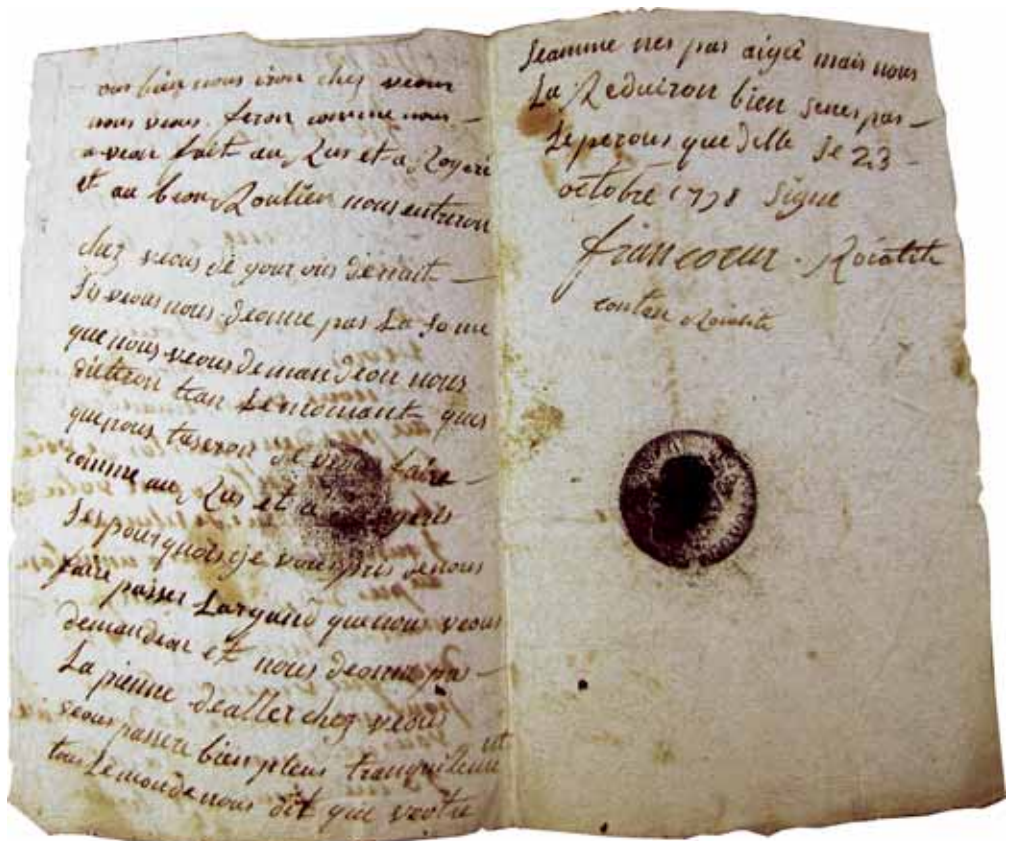 ous bien nous iron chez veous
nous veous feron comme nous
aveon fait au Lus et a Royere
et au bion Roulien nous entreron
chez veous de your ois denuit
Sy veous nous deonne pas La some
que nous veous demandeon nous
tan Le momant que
que nous taseron de veous faire
comme au Lus et a
Ses pour quois je vous pris de nous
faire passer Largand que nous veous
demandeon et nous deonne pas
La pienne dealler chez veous
veous passere bien pleus tranquilement
tous Le monde nous dit que veotre
feamme nes pas aigre mais nous
La Reduiron bien senes pas
Le perous que delle Le 23
octobre 1798 Signe
francoeur Roialiste
Roialiste